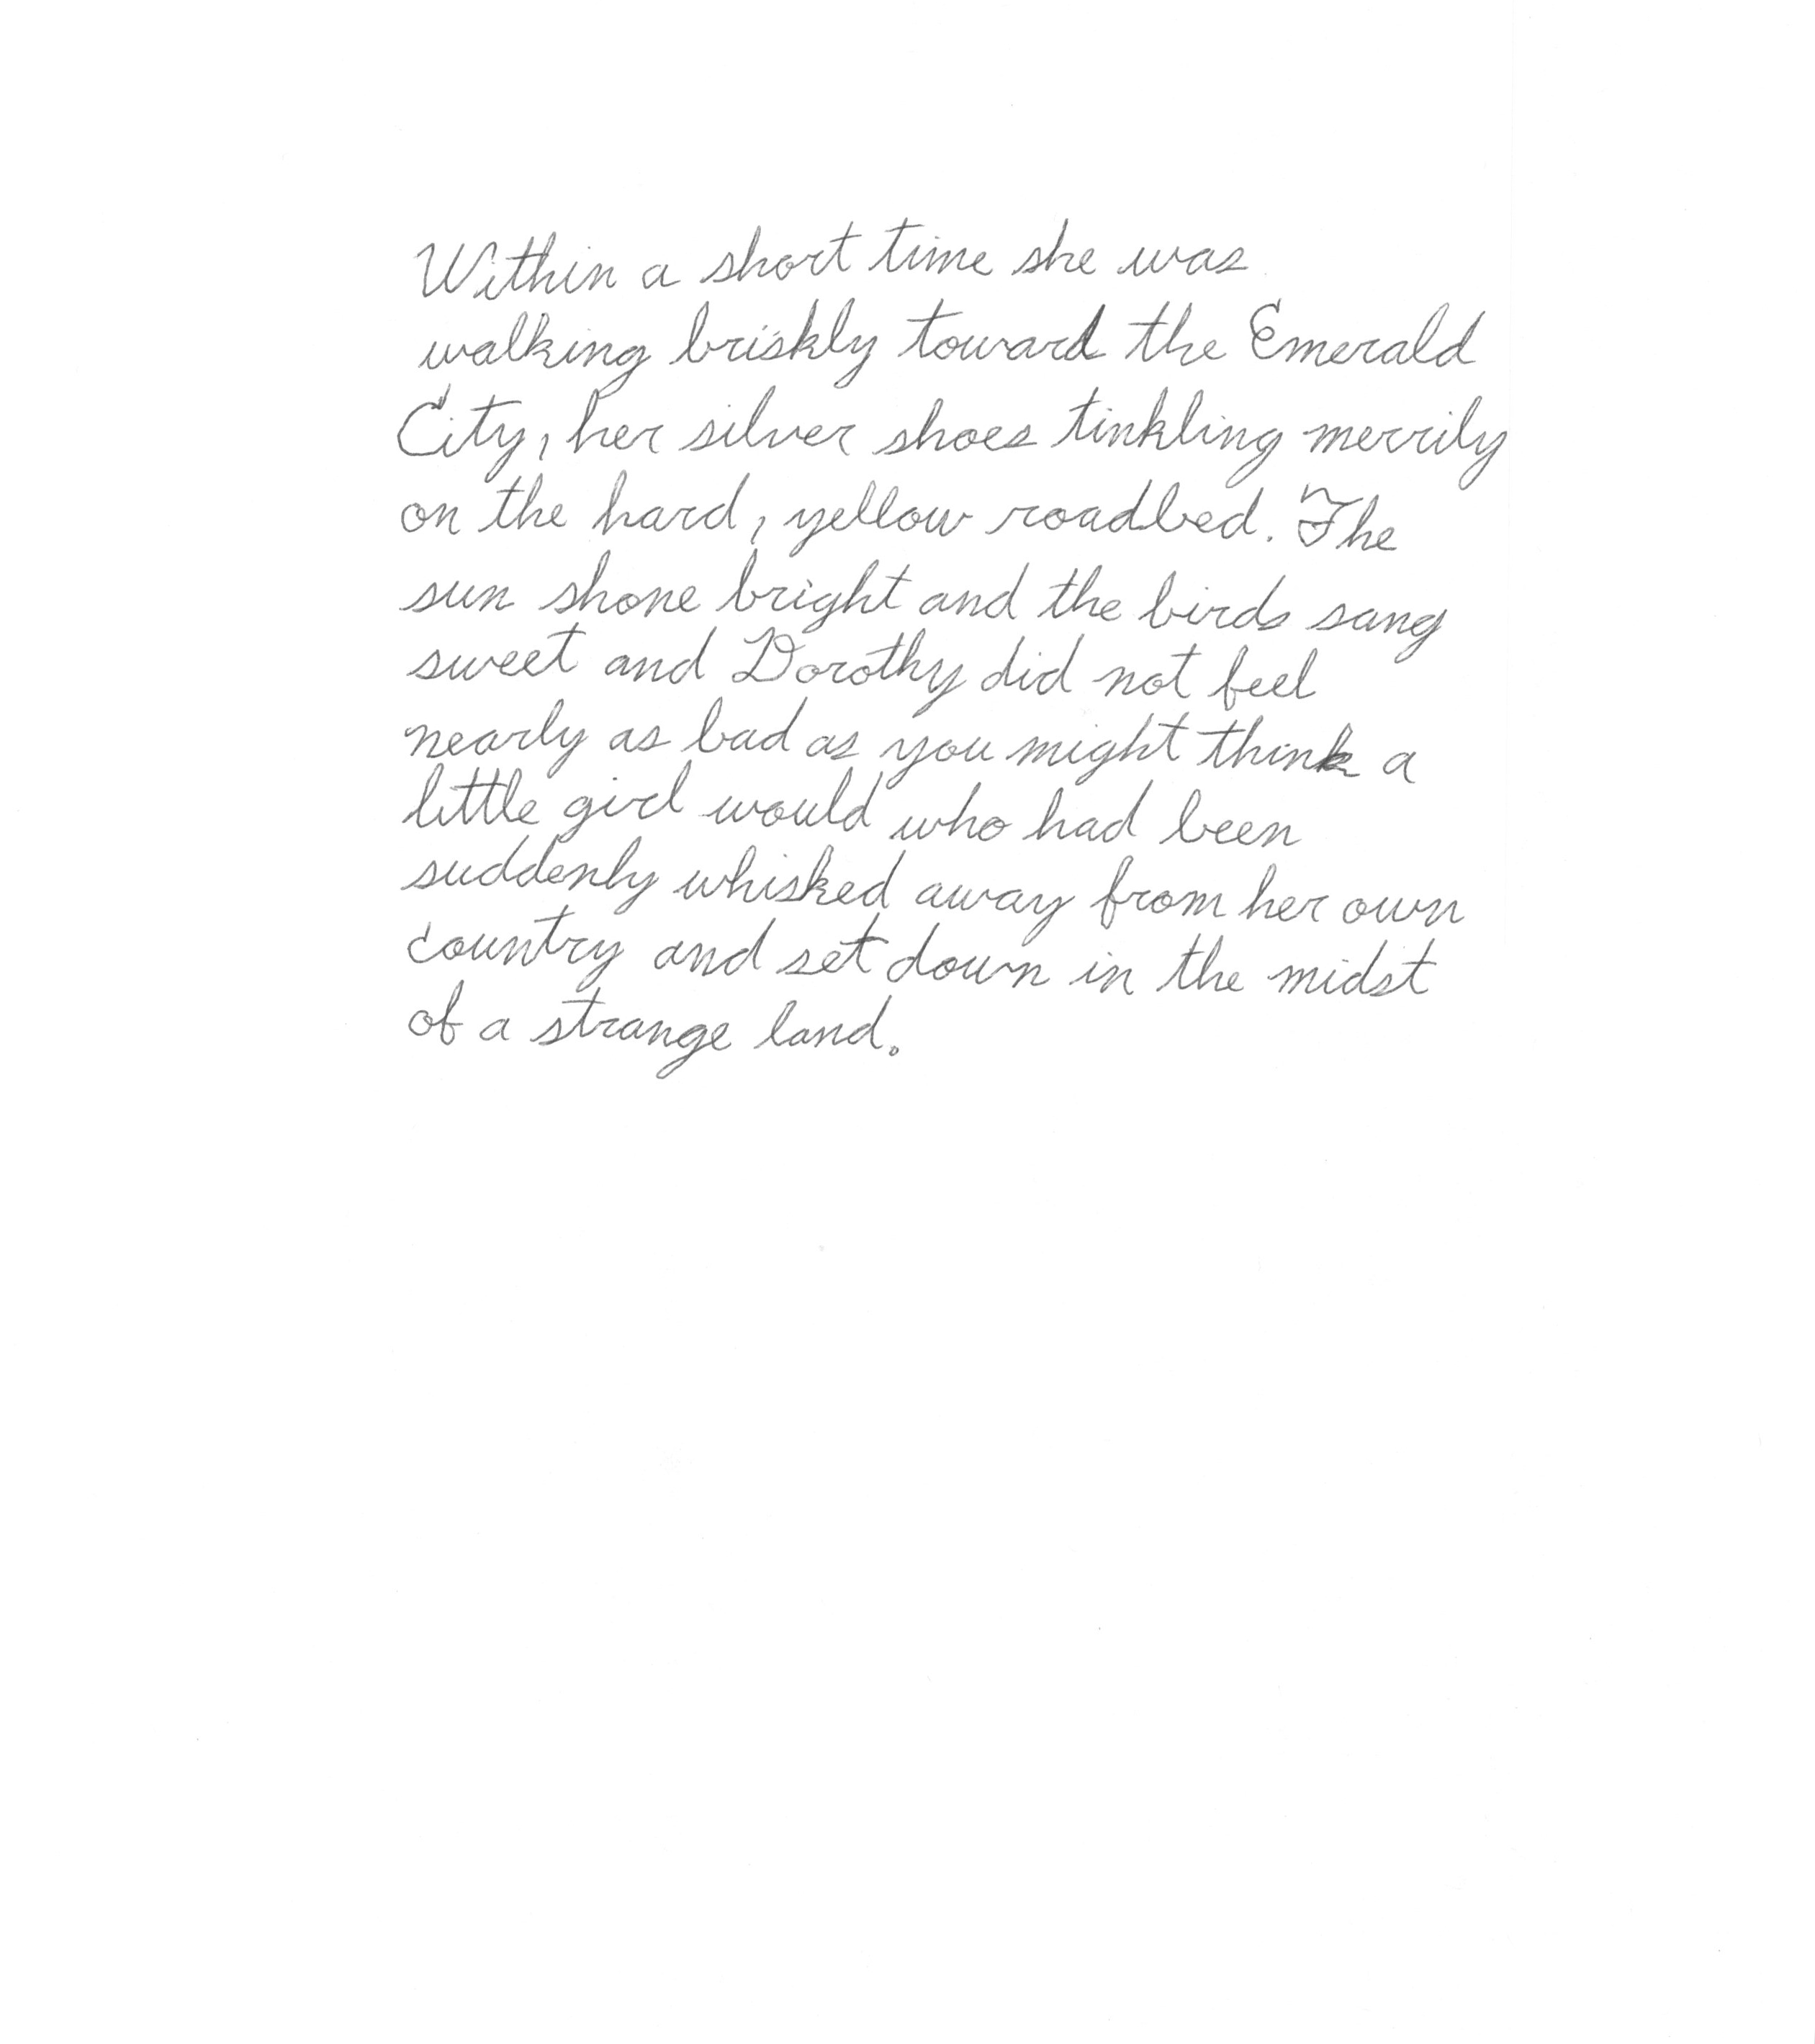 Within a short time she was
walking briskly toward the Emerald
City, her silver shoes tinkling merrily
on the hard, yellow roadbed. The
sun shone bright and the birds sang
sweet and Dorothy did not feel
nearly as bad as you might think a
little girl would who had been
suddenly whisked away from her own
country and set down in the midst
of a strange land.